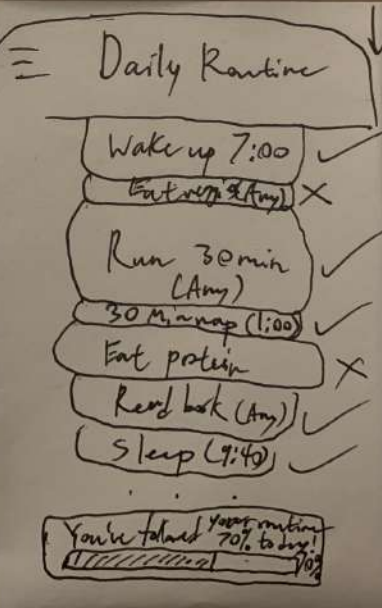 Daily Routine
Wake up 7:00
Eat (Any)
Run 30 min
(Any)
30 Min nap (1:00)
Eat protein
Read book (Any)
Sleep (9:40)
You've followed your routine
70% today!
70%